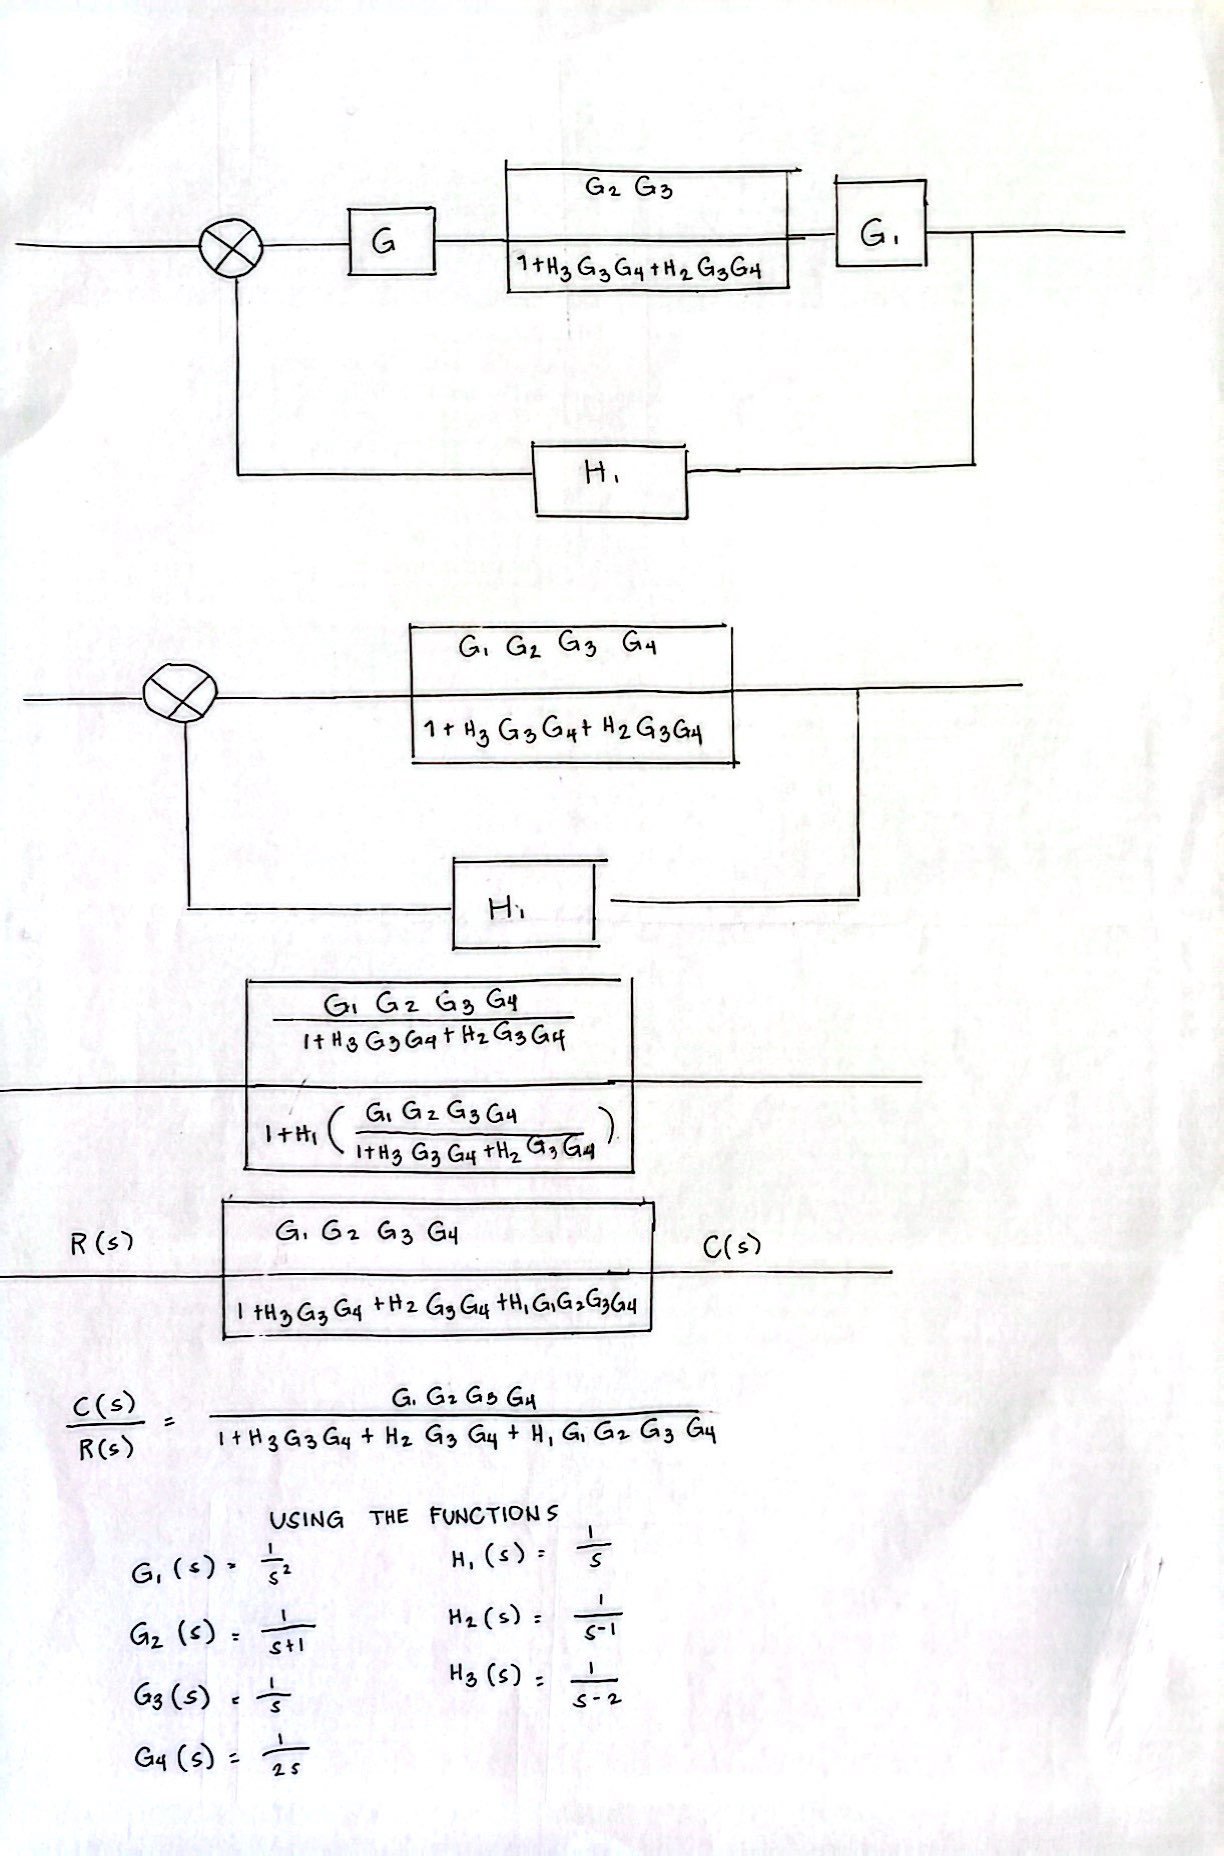 G
G₂ G₃
1+H₃ G₃ G₄ + H₂ G₃ G₄
G₁
H₁
G₁ G₂ G₃ G₄
1 + H₃ G₃ G₄ + H₂ G₃ G₄
H₁
G₁ G₂ G₃ G₄
1+ H₃ G₃ G₄ + H₂ G₃ G₄
1+H₁ ( G₁ G₂ G₃ G₄ / 1+H₃ G₃ G₄ +H₂ G₃ G₄ )
R(s)
G₁ G₂ G₃ G₄
C(s)
1 +H₃ G₃ G₄ +H₂ G₃ G₄ +H₁ G₁ G₂ G₃ G₄
C(s) / R(s) = G₁ G₂ G₃ G₄ / 1+ H₃ G₃ G₄ + H₂ G₃ G₄ + H₁ G₁ G₂ G₃ G₄
USING THE FUNCTIONS
G₁ (s) = 1/s²
H₁ (s) = 1/s
G₂ (s) = 1/s+1
H₂ (s) = 1/s-1
G₃ (s) = 1/s
H₃ (s) = 1/s-2
G₄ (s) = 1/2s